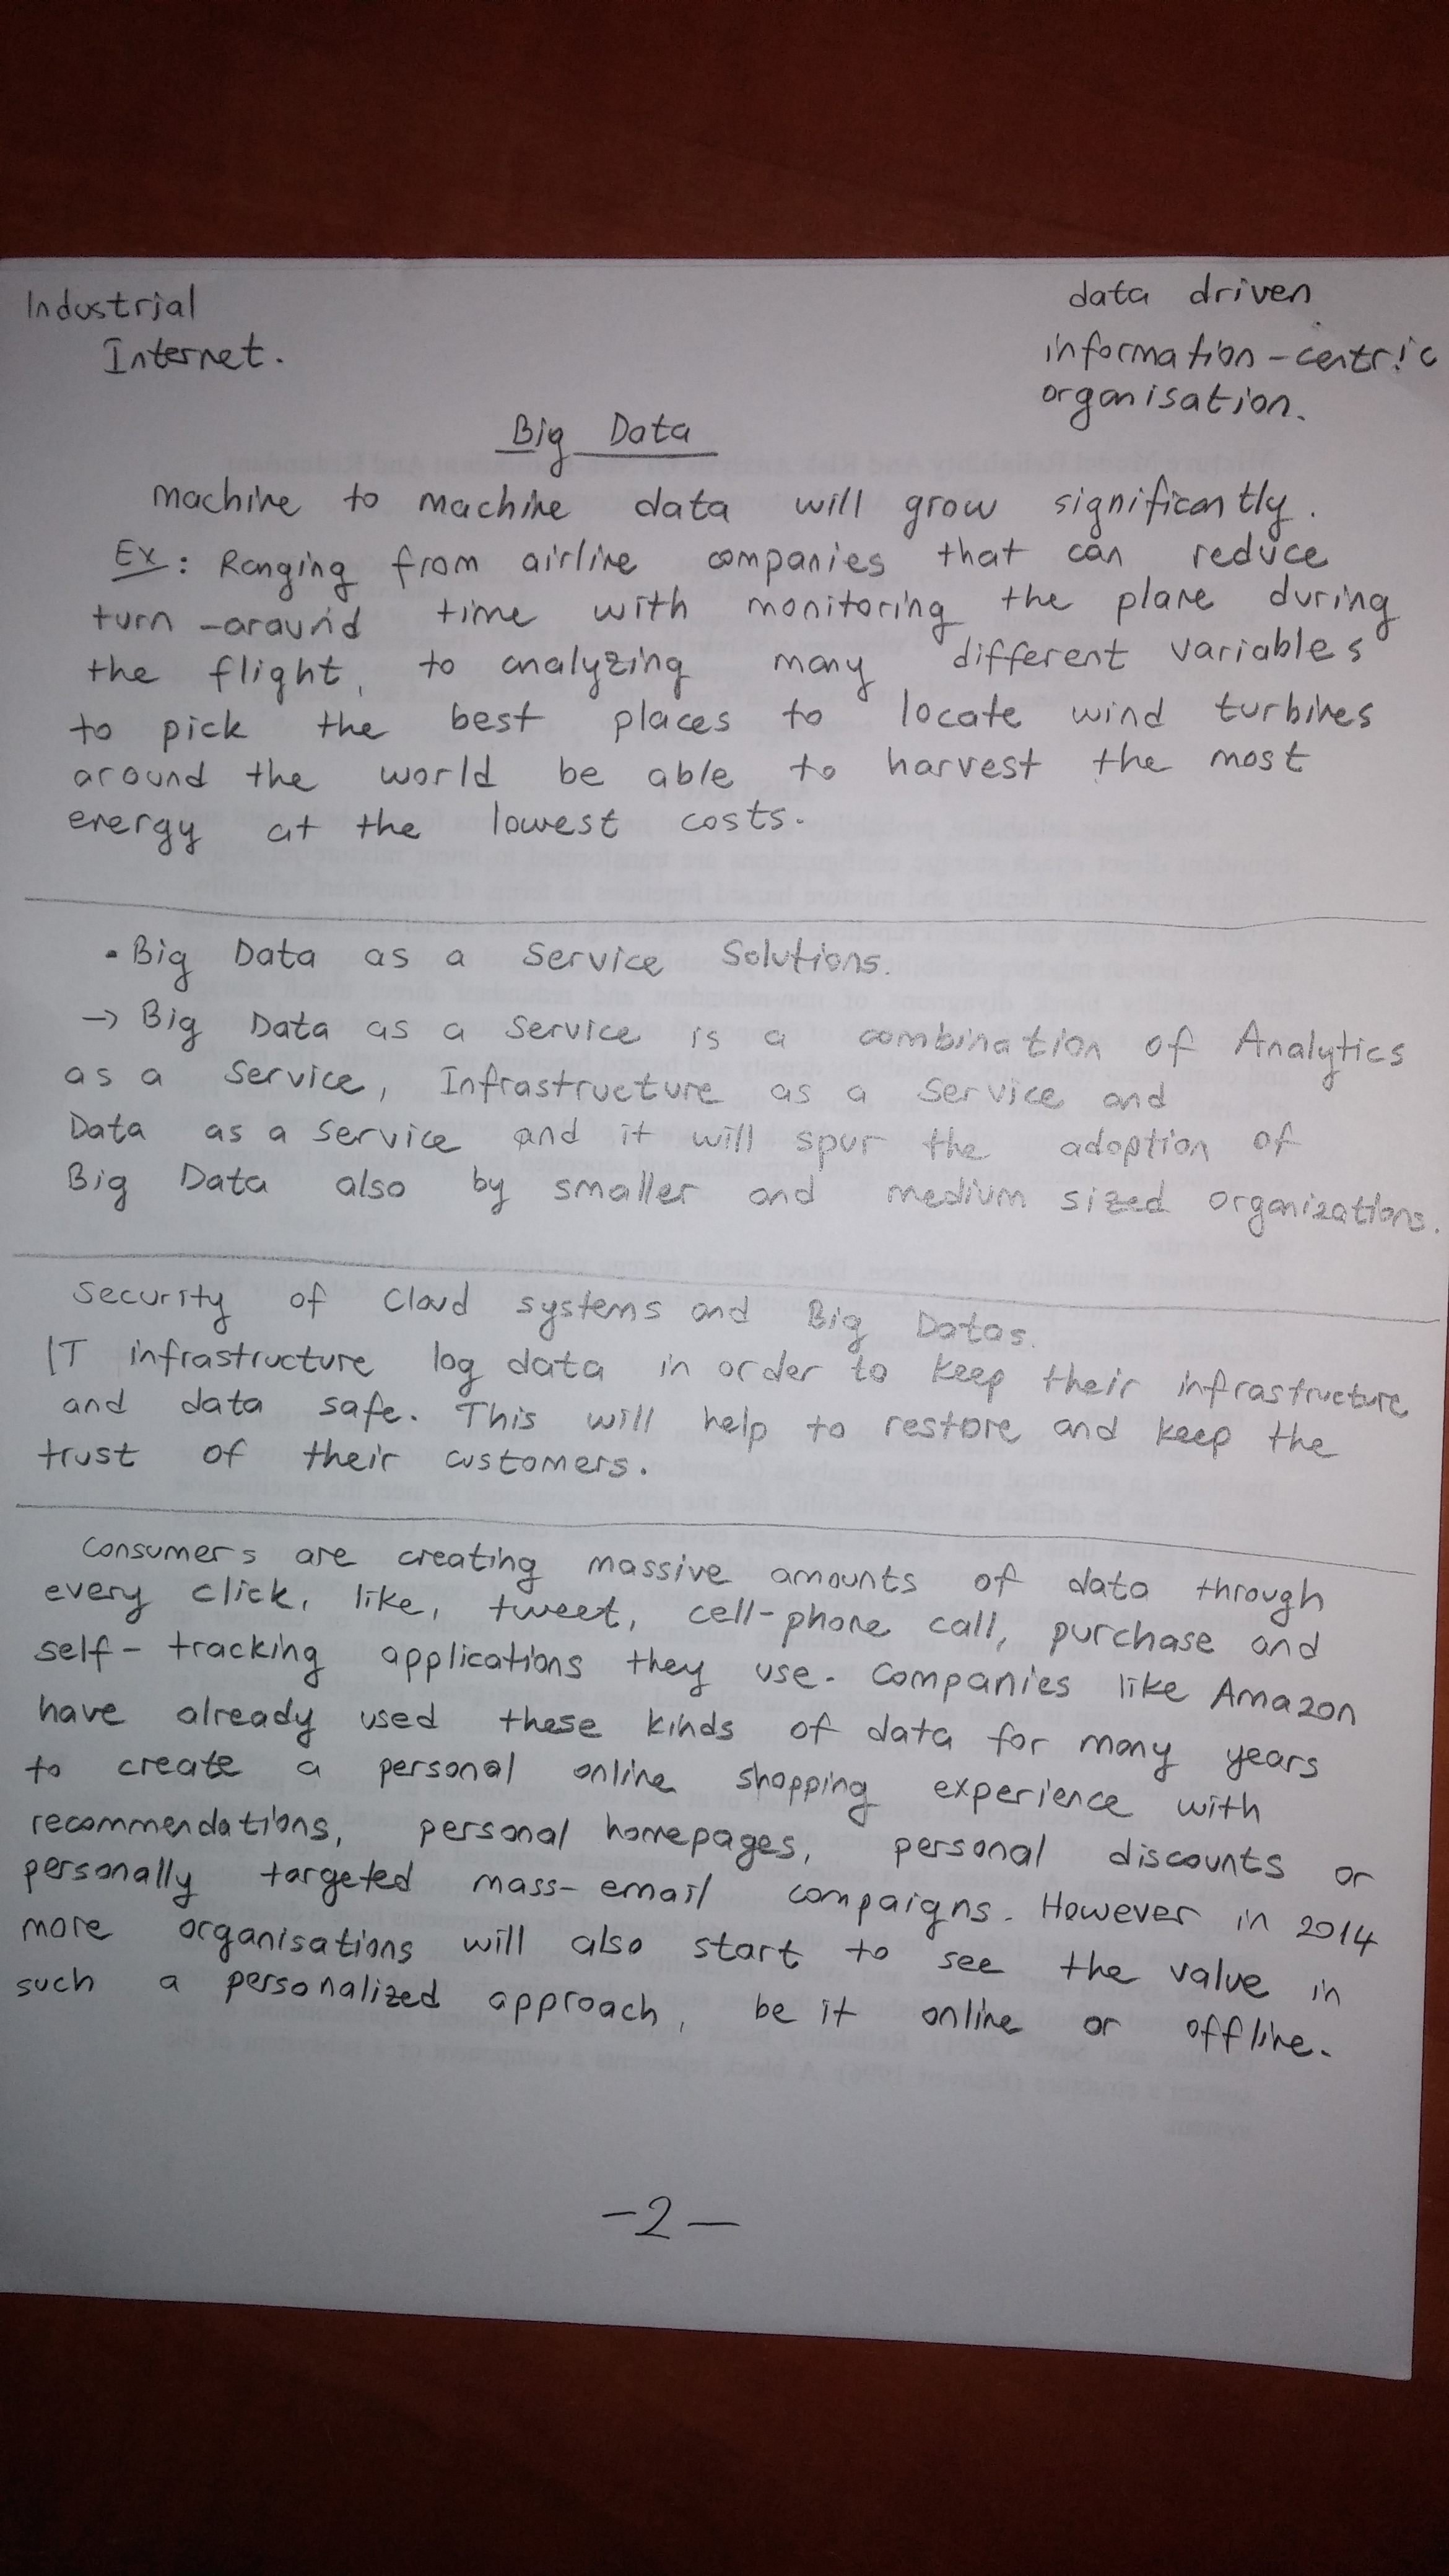 Industrial
Internet.
data driven
information-centric
organisation.
Big Data
Machine to machine data will grow significantly.
Ex: Ranging from airline companies that can reduce
turn-around time with monitoring the plane during
the flight, to analyzing many different variables
to pick the best places to locate wind turbines
around the world be able to harvest the most
energy at the lowest costs.
• Big Data as a Service Solutions.
→ Big Data as a Service is a combination of Analytics
as a Service, Infrastructure as a Service and
Data as a Service and it will spur the adoption of
Big Data also by smaller and medium sized organizations.
Security of Cloud systems and Big Datas.
IT infrastructure log data in order to keep their infrastructure
and data safe. This will help to restore and keep the
trust of their customers.
Consumers are creating massive amounts of data through
every click, like, tweet, cell-phone call, purchase and
self-tracking applications they use. Companies like Amazon
have already used these kinds of data for many years
to create a personal online shopping experience with
recommendations, personal homepages, personal discounts or
personally targeted mass-email campaigns. However in 2014
more organisations will also start to see the value in
such a personalized approach, be it online or offline.
-2-